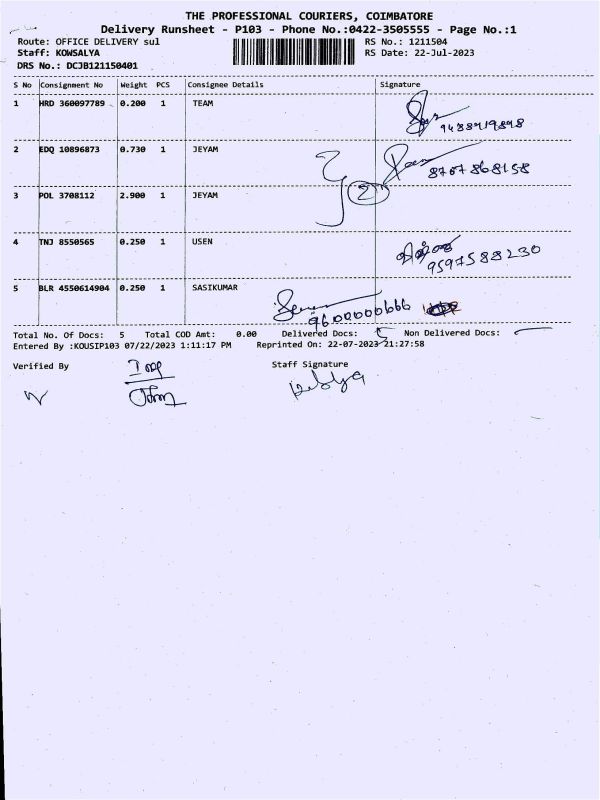 THE PROFESSIONAL COURIERS, COIMBATORE
Delivery Runsheet - P103 - Phone No.:0422-3505555 - Page No.:1
Route: OFFICE DELIVERY sul RS No.: 1211504
Staff: KOWSALYA RS Date: 22-Jul-2023
DRS No.: DCJB121150401
S No Consignment No Weight PCS Consignee Details Signature
1 HRD 360097789 0.200 1 TEAM
2 EDQ 10896873 0.730 1 JEYAM
8767868158
2
3 POL 3708112 2.900 1 JEYAM
4 TNJ 8550565 0.250 1 USEN
9597588230
5 BLR 4550614904 0.250 1 SASIKUMAR
9600000666
Total No. Of Docs: 5 Total COD Amt: 0.00 Delivered Docs: 5 Non Delivered Docs:
Entered By :KOUSIP103 07/22/2023 1:11:17 PM Reprinted On: 22-07-2023 21:27:58
Verified By Staff Signature